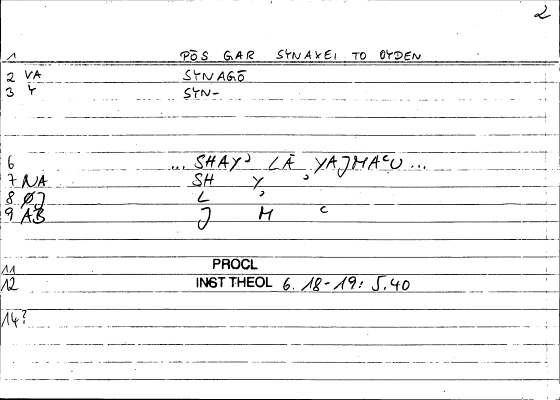 2
1 PŌS GAR SYNAXEI TO OYDEN
2 VA SYNAGŌ
3 Y SYN-
6 ... SHAYʾ LĀ YAJMAʿU ...
7 NA SH Y ʾ
8 ØJ L ʾ
9 AB J M ʿ
11 PROCL
12 INST THEOL 6. 18-19: 5.40
14?